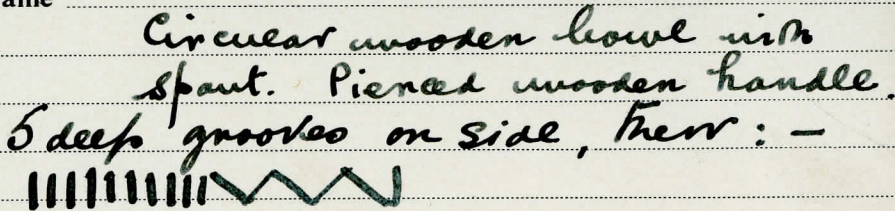 ame
Circular wooden bowl with
spout. Pierced wooden handle.
5 deep grooves on side, then : -